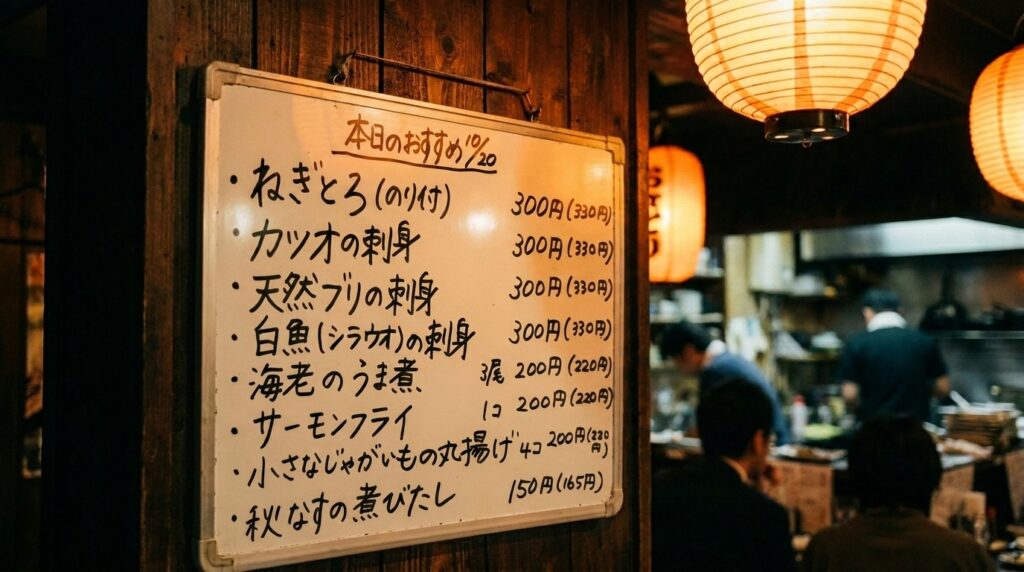 本日のおすすめ10/20
・ねぎとろ(のり付) 300円(330円)
・カツオの刺身 300円(330円)
・天然ブリの刺身 300円(330円)
・白魚(シラウオ)の刺身 300円(330円)
・海老のうま煮 3尾 200円(220円)
・サーモンフライ 1コ 200円(220円)
・小さなじゃがいもの丸揚げ 4コ 200円(220円)
・秋なすの煮びたし 150円(165円)